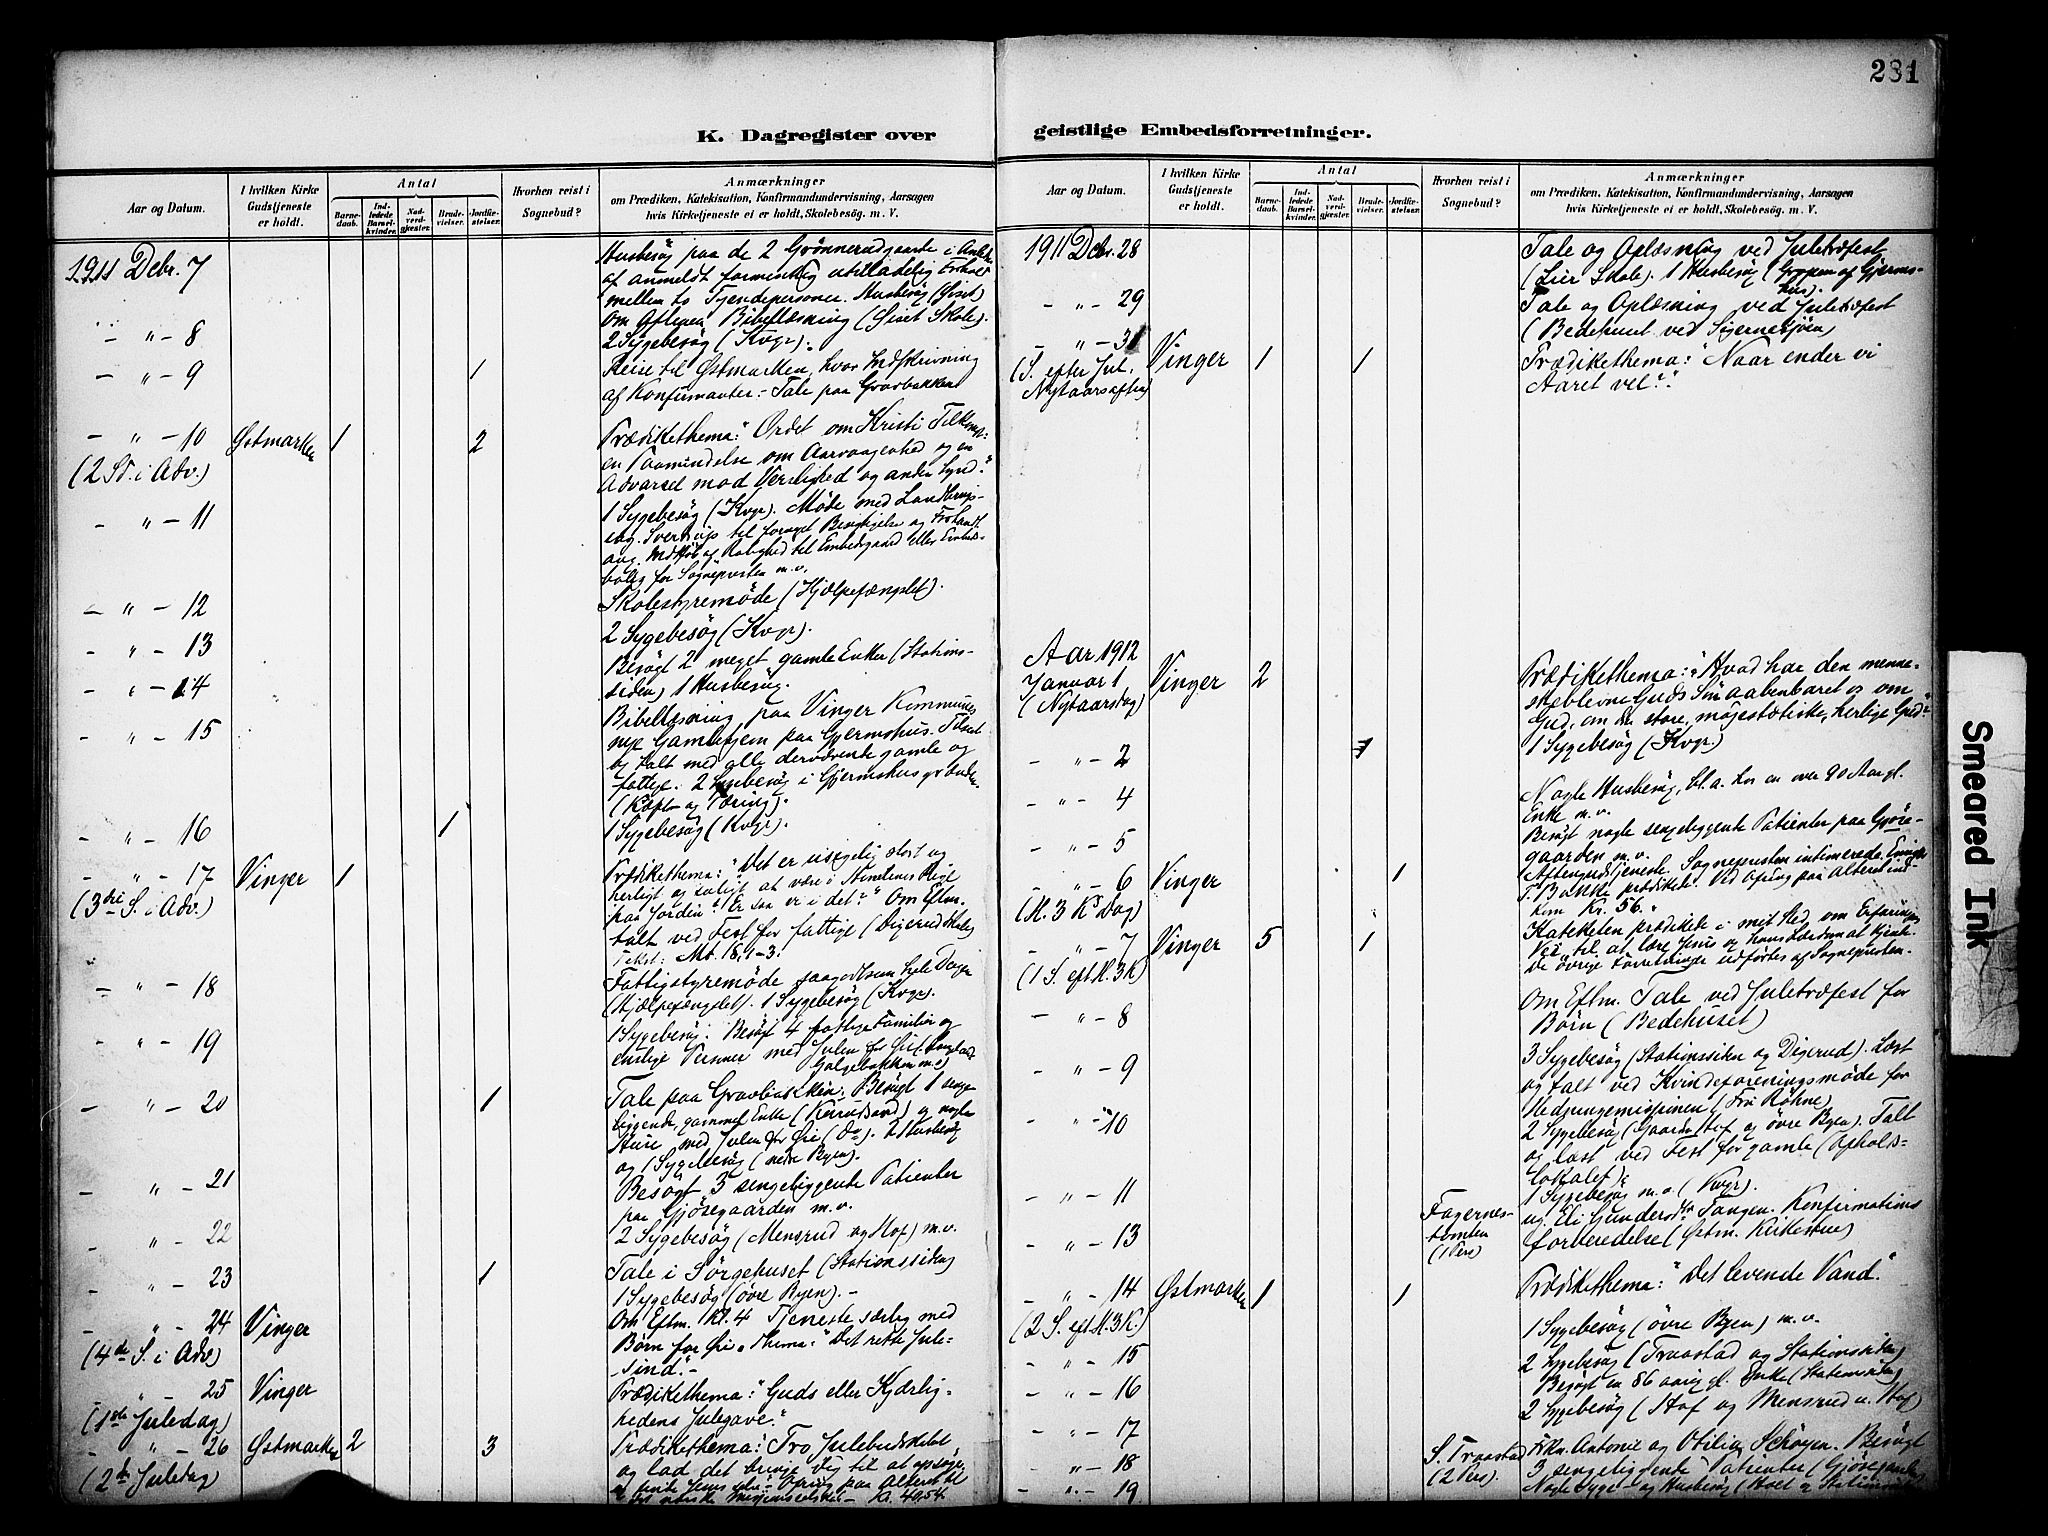 281
K. Dagregister over geistlige Embedsforretninger.
Aar og Datum.
I hvilken Kirke Gudstjeneste er holdt.
Antal
Barnedaab.
Indledede Barselkvinder.
Nadverdgjæster.
Brudevielser.
Jordfæstelser.
Hvorhen reist i Sognebud?
Anmærkninger
om Prædiken, Katekisation, Konfirmandundervisning, Aarsagen
hvis Kirketjeneste ei er holdt, Skolebesøg. m. V.
1911 Debr. 7
Husbesøg paa de 2 Grønnerudgaarde i Anledn.
af anmeldt formentlig utilladelig Forhold
mellem to Tjendepersoner. Husbesøg (Siset)
Om Aftenen Bibellæsning (Siset Skole).
" - 8
2 Sygebesøg (Kvgr).
- " - 9 1
Reise til Østmarken, hvor Indskrivning
af Konfirmanter. - Tale paa Gravbakken
- " - 10 Østmarken 1 2
(2 S. i Adv.)
Prædikethema: "Ordet om Kristi Tilkomst:
en Paamindelse om Aarvaagenhed og en
Advarsel mod Verslighed og anden Synd."
- " - 11
1 Sygebesøg (Kvgr). Møde med Landbrugs-
ing. Sverdrup til foraget Besigtigelse og Forhandl.
ang. Indkjøb af Rolighed til Embedsgaard eller Embeds-
bolig for Sognepresten m.v.
- " - 12
Skolestyremøde (Hjælpefængslet).
- " - 13
2 Sygebesøg (Kvgr).
- " - 14
Besøgt 2 meget gamle Enker (Stations-
siden) 1 Husbesøg.
- " - 15
Bibellæsning paa Vinger Kommunes
nye Gamlehjem paa Gjermshus. Tilset
og talt med alle derværende gamle og
fattige. 2 Sygebesøg i Gjermshusgrænden
- " - 16 1
1 Sygebesøg (Kvgr).
- " - 17 Vinger 1
(3die S. i Adv.)
Prædikethema: "Det er usigelig stort og
herligt og saligt at være i Himlenes Rige
paa Jorden? Er saa er i det?" Om Eftm.
talt ved Fest for fattige (Digerud Skole)
Tekst: Mt. 18,1-3.
- " - 18
Fattigstyremøde saagodtsom hele Dagen
(Hjælpefængslet). 1 Sygebesøg (Kvgr).
- " - 19
1 Sygebesøg. Besøgt 4 fattige Familier og
enslige Personer med Julen for Øie
Galgebakken m.v.)
- " - 20 1
Tale paa Gravbakken. Besøgt 1 senge-
liggende, gammel Enke og nogle
Andre med Julen for Øie (do). 2 Husbesøg
og 1 Sygebesøg (nedre Byen).
- " - 21
Besøgt 3 sengeliggende Patienter
paa Gjøsegaarden m.v.
- " - 22
2 Sygebesøg (Mensrud og Hof) m.v.
- " - 23 1
Tale i Sørgehuset (Stationssiden)
1 Sygebesøg (øvre Byen). -
- " - 24 Vinger
(4de S. i Adv.)
Om Eftm. Kl. 4 Tjeneste særlig med
Børn for Øie. Thema: "Det rette Jule-
sind." -
" - 25 Vinger
(1ste Juledag)
Prædikethema: "Guds eller Kjærlig-
hedens Julegave."
- " - 26 Østmarken 2 3
(2de Juledag)
Prædikethema: "Tro Julebudskabet
og lad det bringe dig til at opsøge
og finde Jesus selv." Ofring paa Alteret til
det norske Missionsselskab - Kr. 40,54.
Aar og Datum.
I hvilken Kirke Gudstjeneste er holdt.
Antal
Barnedaab.
Indledede Barselkvinder.
Nadverdgjæster.
Brudevielser.
Jordfæstelser.
Hvorhen reist i Sognebud?
Anmærkninger
om Prædiken, Katekisation, Konfirmandundervisning, Aarsagen
hvis Kirketjeneste ei er holdt, Skolebesøg. m. V.
1911 Debr. 28
Tale og Oplæsning ved Juletræfest
(Lier Skole). 1 Husbesøg (Toppen af Gjerms-
hus).
- " - 29
Tale og Oplæsning ved Juletræfest
(Bedehuset ved Sigernesjøen)
- " - 31 Vinger 1 1
(S. efter Jul,
Nytaarsaften)
Prædikethema: "Naar ender vi
Aaret vel?"
Aar 1912
Januar 1 Vinger 2
(Nytaarsdag)
Prædikethema: "Hvad har den menne-
skeblevne Guds Søn aabenbaret os om
Gud, om den store, majestætiske, herlige Gud?"
- " - 2 1
1 Sygebesøg (Kvgr.)
- " - 4
Nogle Husbesøg, bl.a. hos en over 90 Aar gl.
Enke m.v.
- " - 5
Besøgt nogle sengeliggende Patienter paa Gjøse-
gaarden m.v.
- " - 6 Vinger 1
(H. 3 K's Dag)
Aftengudstjeneste. Sognepresten intimerede. Emigr.
P. Bakke prædikede. Ved Ofring paa Alteret ind-
kom Kr. 56.
- " - 7 Vinger 5 1
(1 S. eft H. 3 K)
Kateketen prædikede i mit Sted om Erfaringens
Vei til at lære Jesus og hans Lærdom at kjende
De øvrige Forretninger udførtes af Sognepresten.
- " - 8
Om Eftm. Tale ved Juletræfest for
Børn (Bedehuset)
- " - 9
3 Sygebesøg (Stationssiden og Digerud). Læst
og talt ved Kvindeforeningsmøde for
Hedningemissionen (Fru Røhne)
- " - 10
2 Sygebesøg (Gaarden Hof og øvre Byen). Talt
og læst ved Fest for gamle (Afholds-
lokalet).
- " - 11
1 Sygebesøg m.v. (Kvgr).
- " - 13
Fagernes-
tomten
(1 Pers)
ug. Eli Gundersdtr. Tangen. Konfirmations
forberedelse (Østm. Kirkestue)
- " - 14 Østmarken 1 1
(2 S. eft H. 3 K.)
Prædikethema: "Det levende Vand."
- " - 15
1 Sygebesøg (øvre Byen) m.v.
- " - 16
2 Sygebesøg (Traastad og Stationssiden)
Besøgt en 86 aarig gl. Enke (Stationssiden)
- " - 17
2 Sygebesøg (Hof og Mensrud u. Hof)
- " - 18
S. Traastad
(2 Pers).
Frkn. Antonie og Otilia Schøyen. Besøgt
3 sengeliggende Patienter (Gjøsegaarden)
- " - 19
Nogle Syge- og Husbesøg (Hoel og Stationssiden)
Smeared Ink